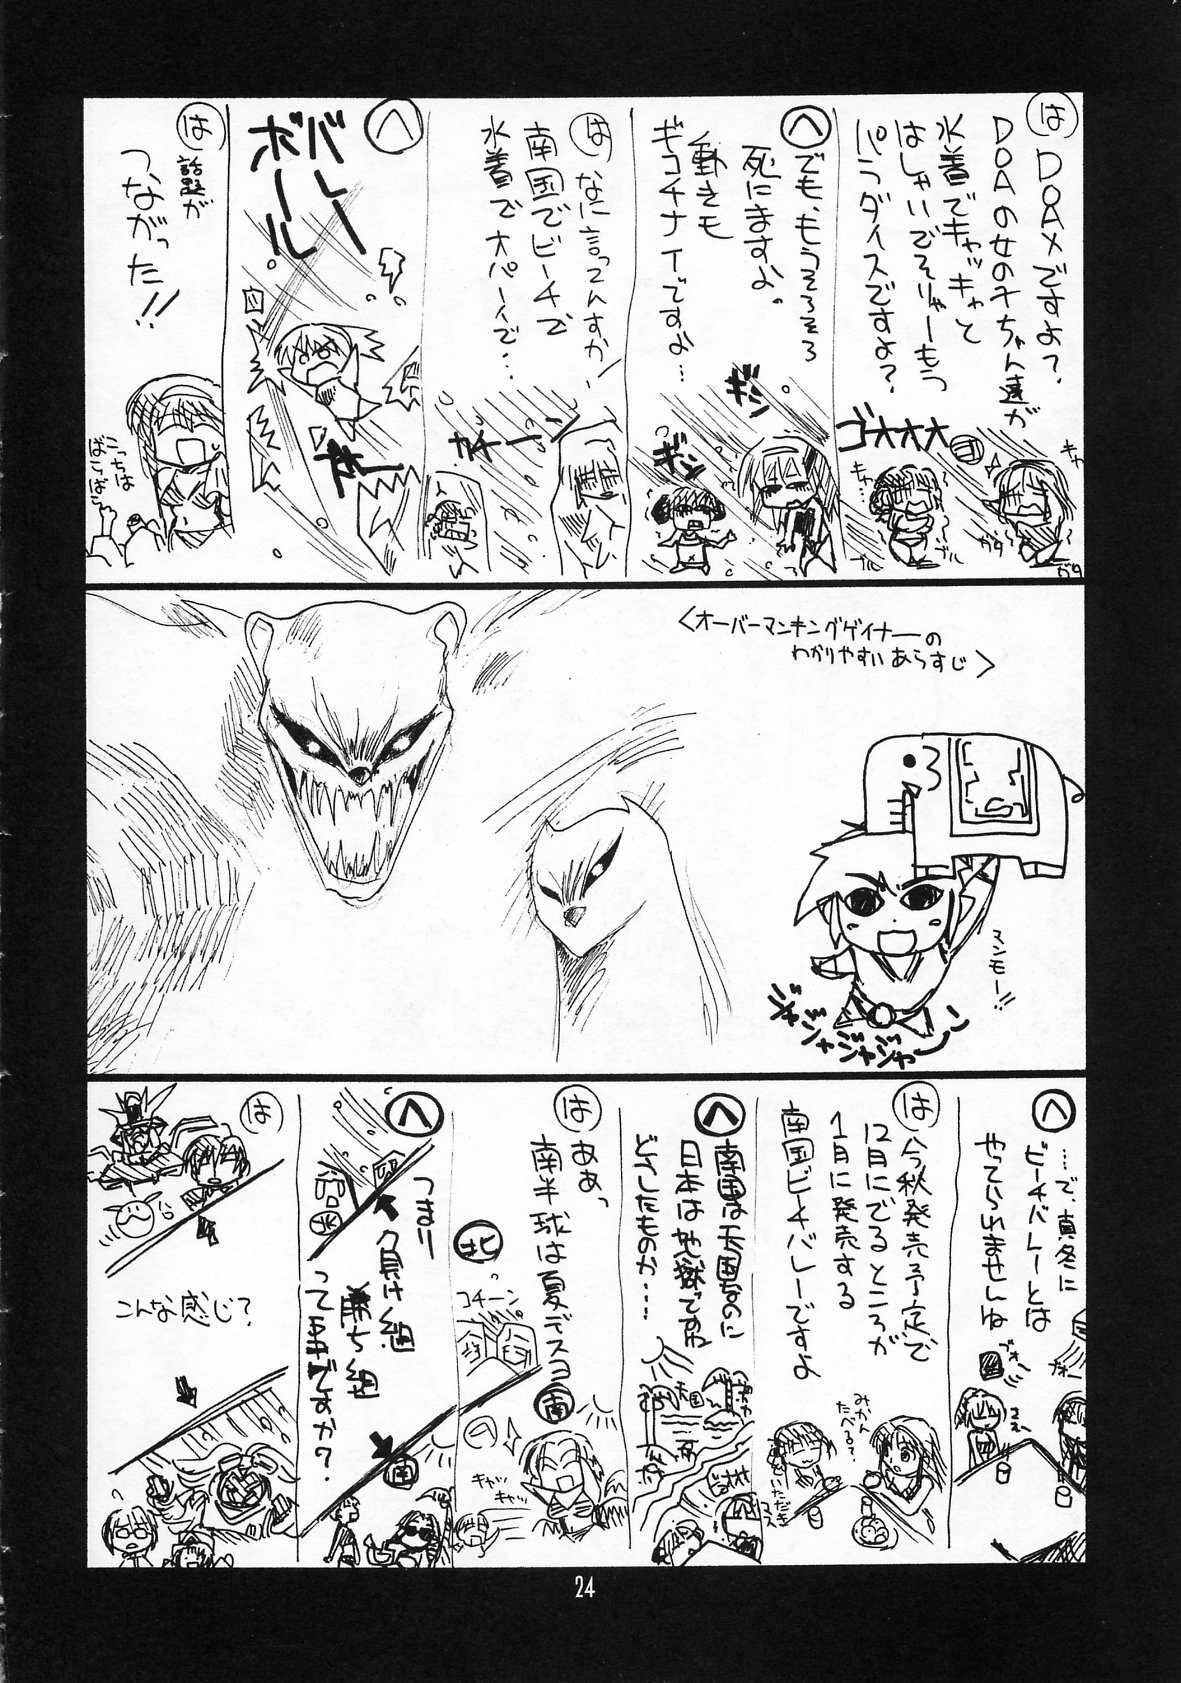 は
DOAXですよ?
DOAの女のチちゃん達が
水着でキャッキャと
はしゃいでそりゃーもう
パラダイスですよ?
キャ
キャ…
ゴオオオ
ガタ
ブル
ブル
ガタ
へ
でも、もうそろそろ
死にますよ。
動きも
ギコチナイですよ…
ギシ
ギシ
は
なに言ってんすか!
南国でビーチで
水着で大パーイで…
カチーン
へ
バレー
ボール
は
話題が
つながった!!
こっちは
ばらばら
<オーバーマンキングゲイナーの
わかりやすいあらすじ>
マンモー!!
ジャンジャジャジャーン
へ
……で、真冬に
ビーチバレーとは
やてられませんね
ブオー
ブオー
は
今秋発売予定で
12月にでるところが
1月に発売する
南国ビーチバレーですよ
みかん
たべる?
いただき
へ
南国は天国なのに
日本は地獄でな
どうしたものか……
天国
は
ああっ
南半球は夏デスヨ
南
北
コチーン
キャッ
キャッ
へ
つまり
負け組
勝ち組
ってコトですか?
南
は
こんな感じ?
24